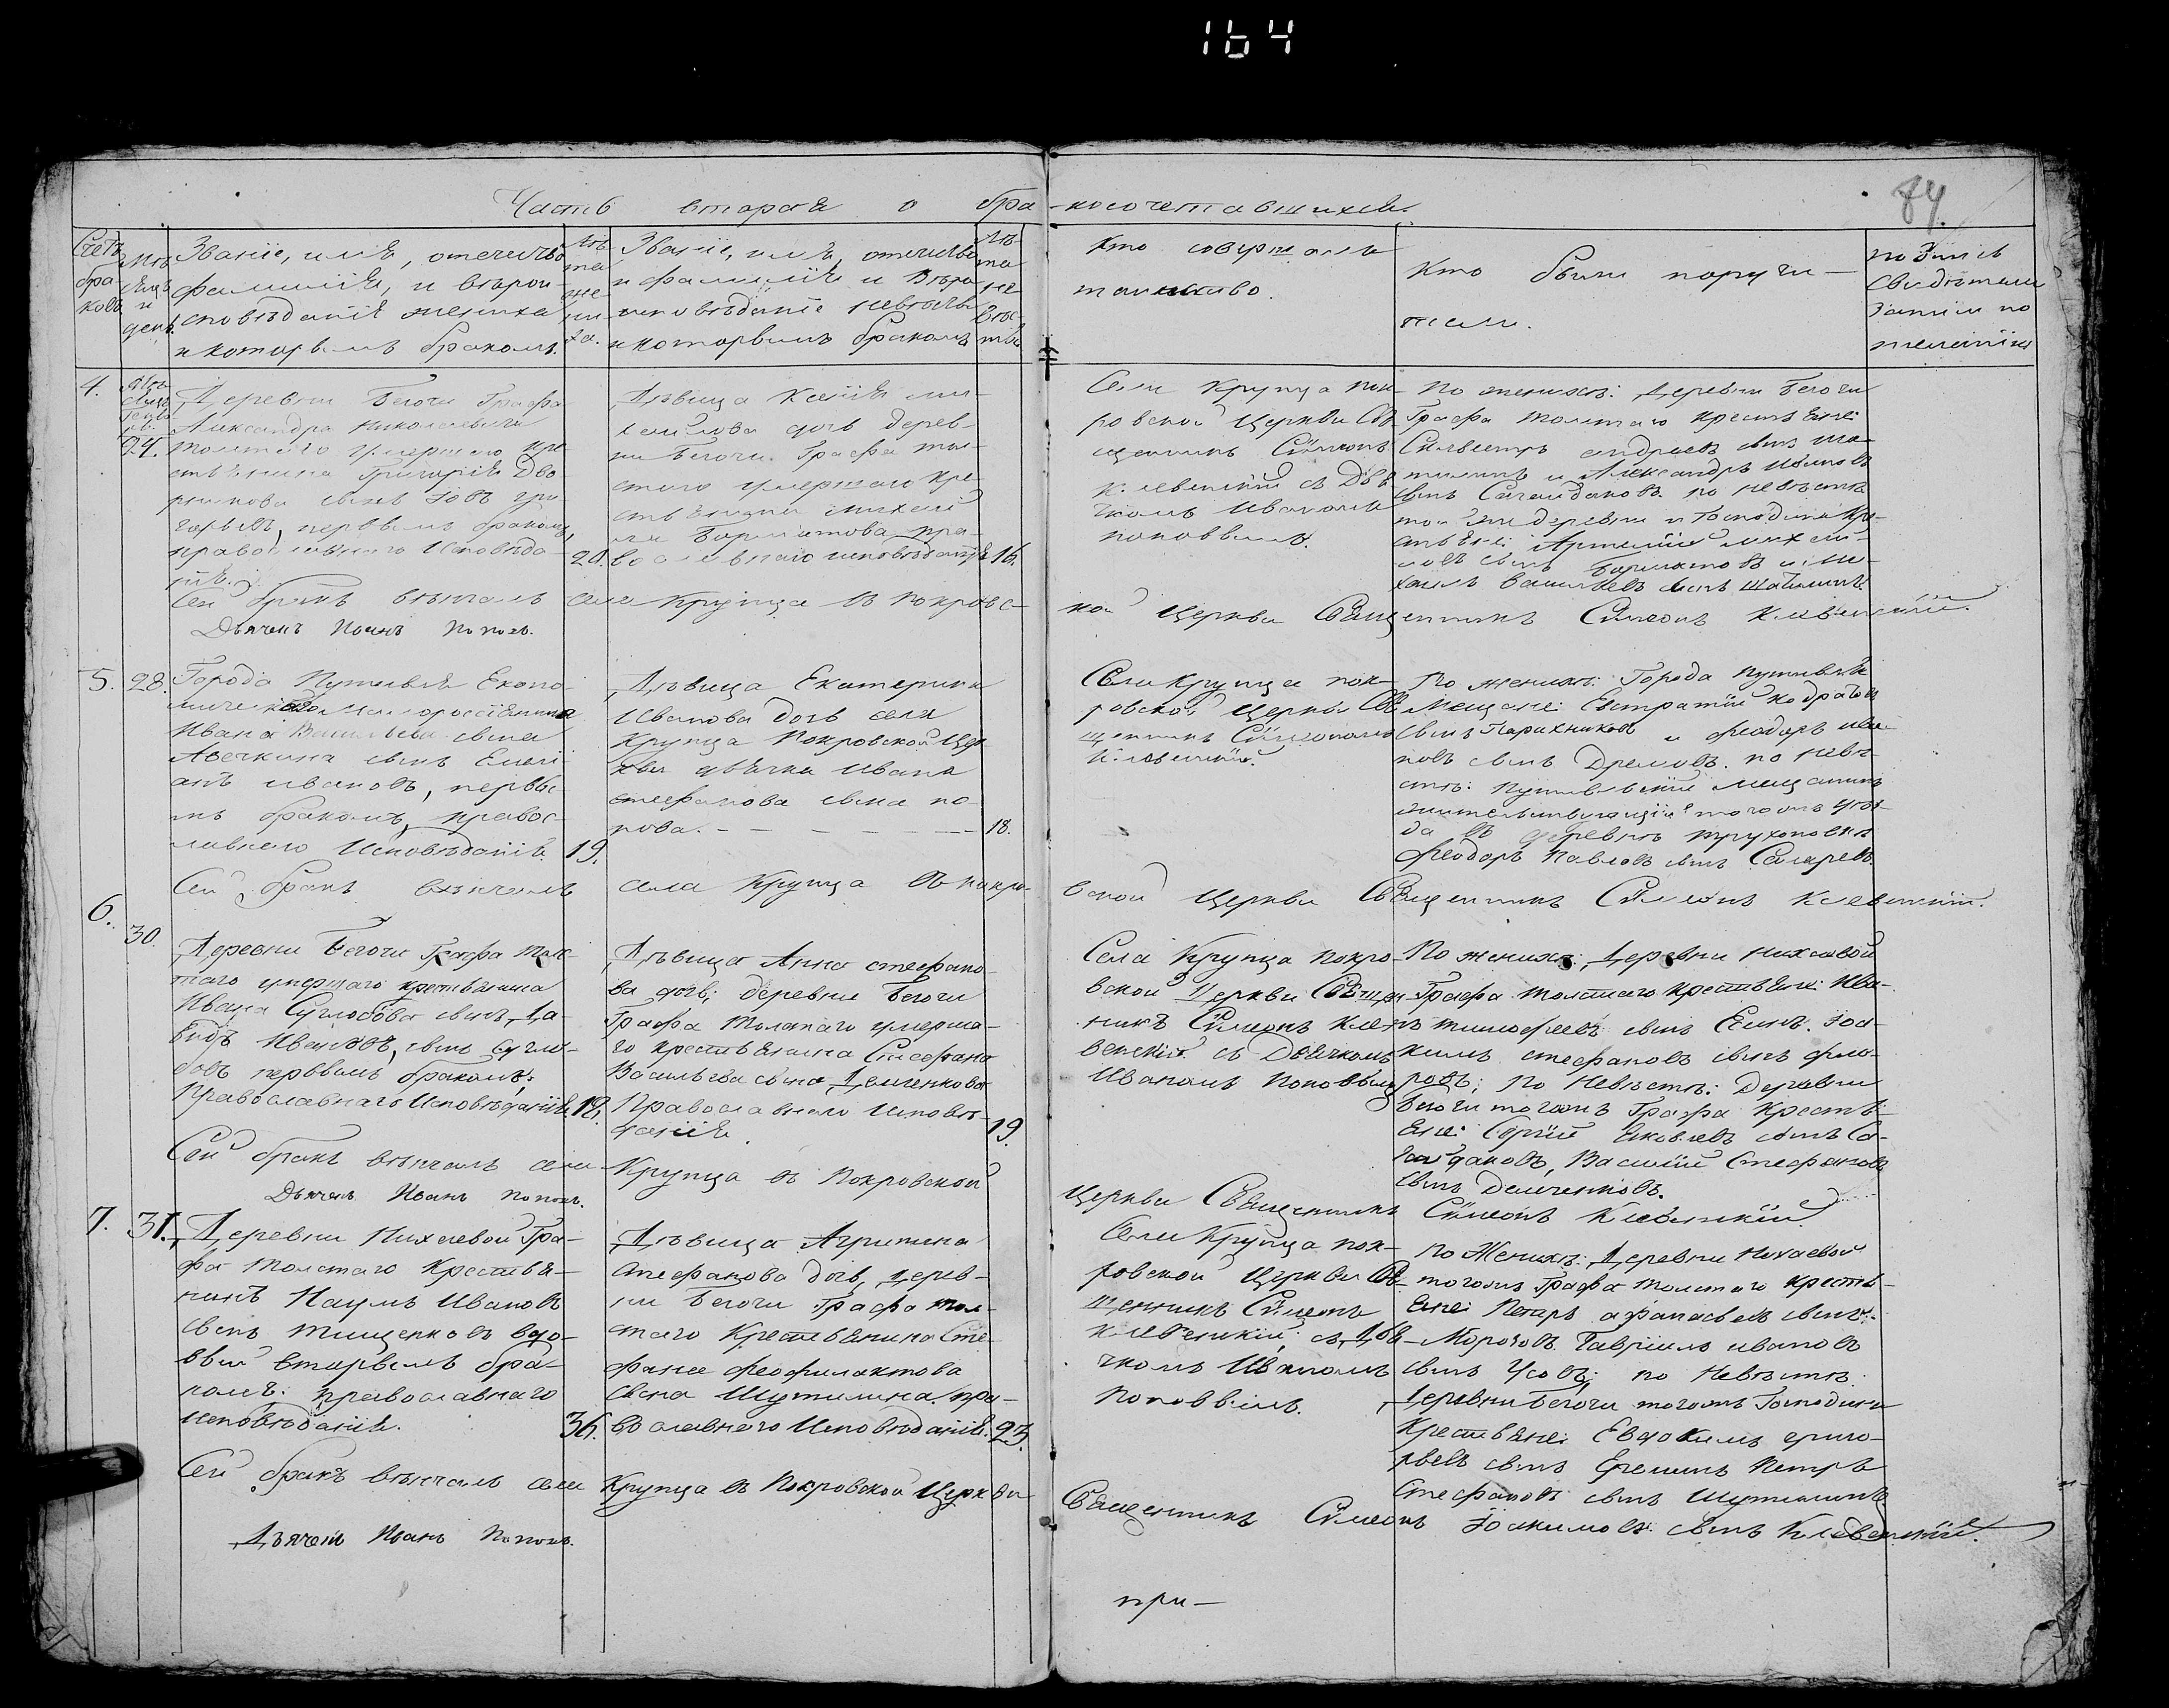 164
84.
Часть вторая о бра-косочетавшихся.
Счетъ
бра-
ковъ
Мѣ-
сяцъ
и
день
Званіе, имя, отечество
фамилія, и вѣрои-
сповѣданіе жениха
и которымъ бракомъ.
Лѣ-
та
же-
ни-
ха.
Званіе, имя, отечество
и фамилія и вѣро
исповѣданіе невѣсты
и которымъ бракомъ
Лѣ-
та
не-
вѣс-
ты
Кто совершалъ
таинство.
Кто были поручи-
тели.
подпись
свидѣтелей
записи по
желанію
4.
24.
Деревни Бегочи Графа
Александра Николаевича
Толстаго умершаго кре
стьянина Григорія Дво
рникова сынъ Іовъ Гри
горьевъ, первымъ бракомъ,
православнаго Исповѣда-
нія.
20.
Дѣвица Ксенія ми-
хайлова дочь дерев-
ни Бегочи Графа тол-
стаго умершаго кре-
стьянина михай
ла пра-
вославнаго исповѣданія
16.
Села Крупца пок-
ровской Церкви Свя
щенникъ Сѵмеонъ
Клевенскій съ Дья
чкомъ Иваномъ
поповымъ.
По женихѣ: Деревни Бегочи
Графа толстаго крестьяне:
Сильвестръ андреевъ сынъ
и Александръ Ивановъ
сынъ Сагайдаковъ. по невѣстѣ
той же деревни и Господина кре-
стьяне: Артемій михай-
ловъ сынъ и ми-
хаилъ васильевъ сынъ
Сей бракъ вѣнчалъ села Крупца въ Покровс-
кой Церкви Священникъ Сѵмеонъ Клевенскій.
Дьячекъ Иванъ Поповъ.
5.
28.
Города Путивля Еконо-
мическаго малороссіянина
Ивана Васильева сына
Авечкина сынъ Емелі
анъ ивановъ, первы-
мъ бракомъ, правос-
лавнаго Исповѣданія.
19.
Дѣвица Екатерина
Иванова дочь села
Крупца Покровской Цер
кви дьячка Ивана
стефанова сына по
пова. — — — — —
18.
Села Крупца пок-
ровской Церкви Свя
щенникъ Сѵмеонъ
Клевенскій.
По женихѣ: Города Путивля
Мещане: Евстратій кодратовъ
сынъ Парахниковъ и Феодоръ ива
новъ сынъ Дремовъ. по невѣ
стѣ: Путивльскій мещанинъ
жительствующій тогожъ уѣз-
да въ деревнѣ
Феодоръ Павловъ сынъ
Сей бракъ вѣнчалъ села Крупца въ покро-
вской Церкви Священникъ Сѵмеонъ Клевенскій.
6.
30.
Деревни Бегочи Графа Толс-
таго умершаго крестьянина
Ивана Суглобова сынъ Да-
видъ Ивановъ сынъ Сугло-
бовъ первымъ бракомъ,
Православнаго Исповѣданія.
18.
Дѣвица Анна стефано-
ва дочь; деревни Бегочи
Графа Толстаго умерша-
го крестьянина Стефана
Васильева сына Демченкова
Православнаго Исповѣ-
данія.
19.
Села Крупца Покро-
вской Церкви Священ
никъ Сѵмеонъ Кле-
венскій съ Дьячкомъ
Иваномъ Поповымъ
По женихѣ: Деревни Нихаевой
Графа толстаго крестьяне: Ива-
нъ тимофеевъ сынъ Есинъ. Іоа-
кимъ стефановъ сынъ Фло-
ровъ; По Невѣстѣ: Деревни
Бегочи тогожъ Графа Кресть-
яне: Сергій Яковлевъ сынъ Са-
гайдаковъ, Василій Стефановъ
сынъ Демченковъ.
Сей бракъ вѣнчалъ села Крупца въ Покровской
Церкви Священникъ Сѵмеонъ Клевенскій
Дьячекъ Иванъ Поповъ.
7.
31.
Деревни Нихаевой Гра-
фа Толстаго Крестья-
нинъ Наумъ Ивановъ
сынъ Тищенковъ вдо-
вый вторымъ бра-
комъ: православнаго
исповѣданія.
36.
Дѣвица Агрипина
Стефанова дочь, дерев-
ни Бегочи Графа тол-
стаго Крестьянина Сте-
фана Феофилактова
сына Шутилина. пра-
вославнаго Исповѣданія.
23.
Села Крупца пок-
ровской Церкви Свя-
щенникъ Сѵмеонъ
клевенскій; съ Дья-
чкомъ Иваномъ
Поповымъ.
По Женихѣ: Деревни Нихаевой
тогожъ Графа толстаго кресть-
яне: Петръ афанасьевъ сынъ
Морозовъ. Гавріилъ ивановъ
сынъ Усовъ; по Невѣстѣ:
Деревни Бегочи тогожъ Господина
Крестьяне: Евдокимъ григо-
рьевъ сынъ Еремин Петръ
Стефановъ сынъ Шутилинъ
Сей бракъ вѣнчалъ села Крупца въ Покровской Церкви
Священникъ Сѵмеонъ Іоакимовъ сынъ Клевенскій.
Дьячекъ Иванъ Поповъ.
при-